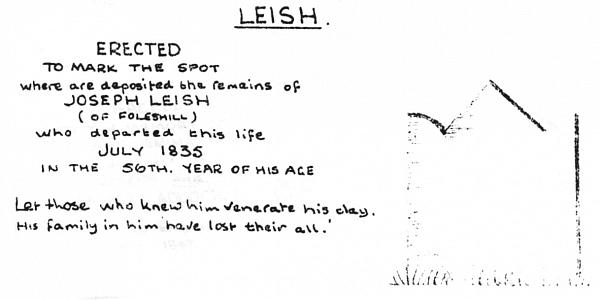 LEISH.
ERECTED
TO MARK THE SPOT
where are deposited the remains of
JOSEPH LEISH
(OF FOLESHILL)
who departed this life
JULY 1835
IN THE 56TH. YEAR OF HIS AGE
Let those who knew him venerate his clay.
His family in him have lost their all.'